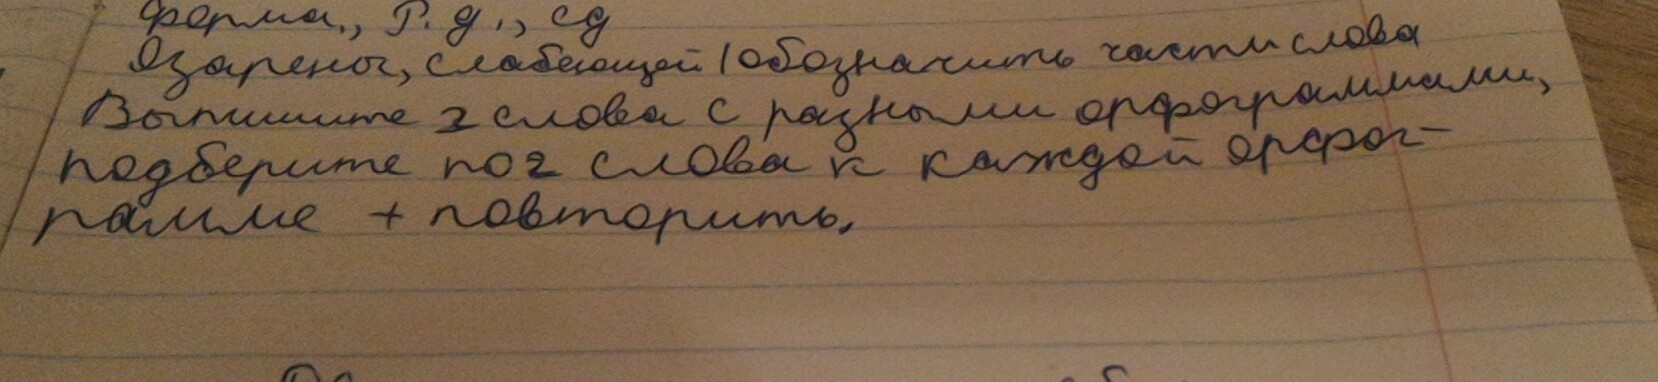 форма., Р. д., ед
Озарены, слабеющей / обозначить части слова
Выпишите 2 слова с разными орфограммами,
подберите по 2 слова к каждой орфог-
рамме + повторить.